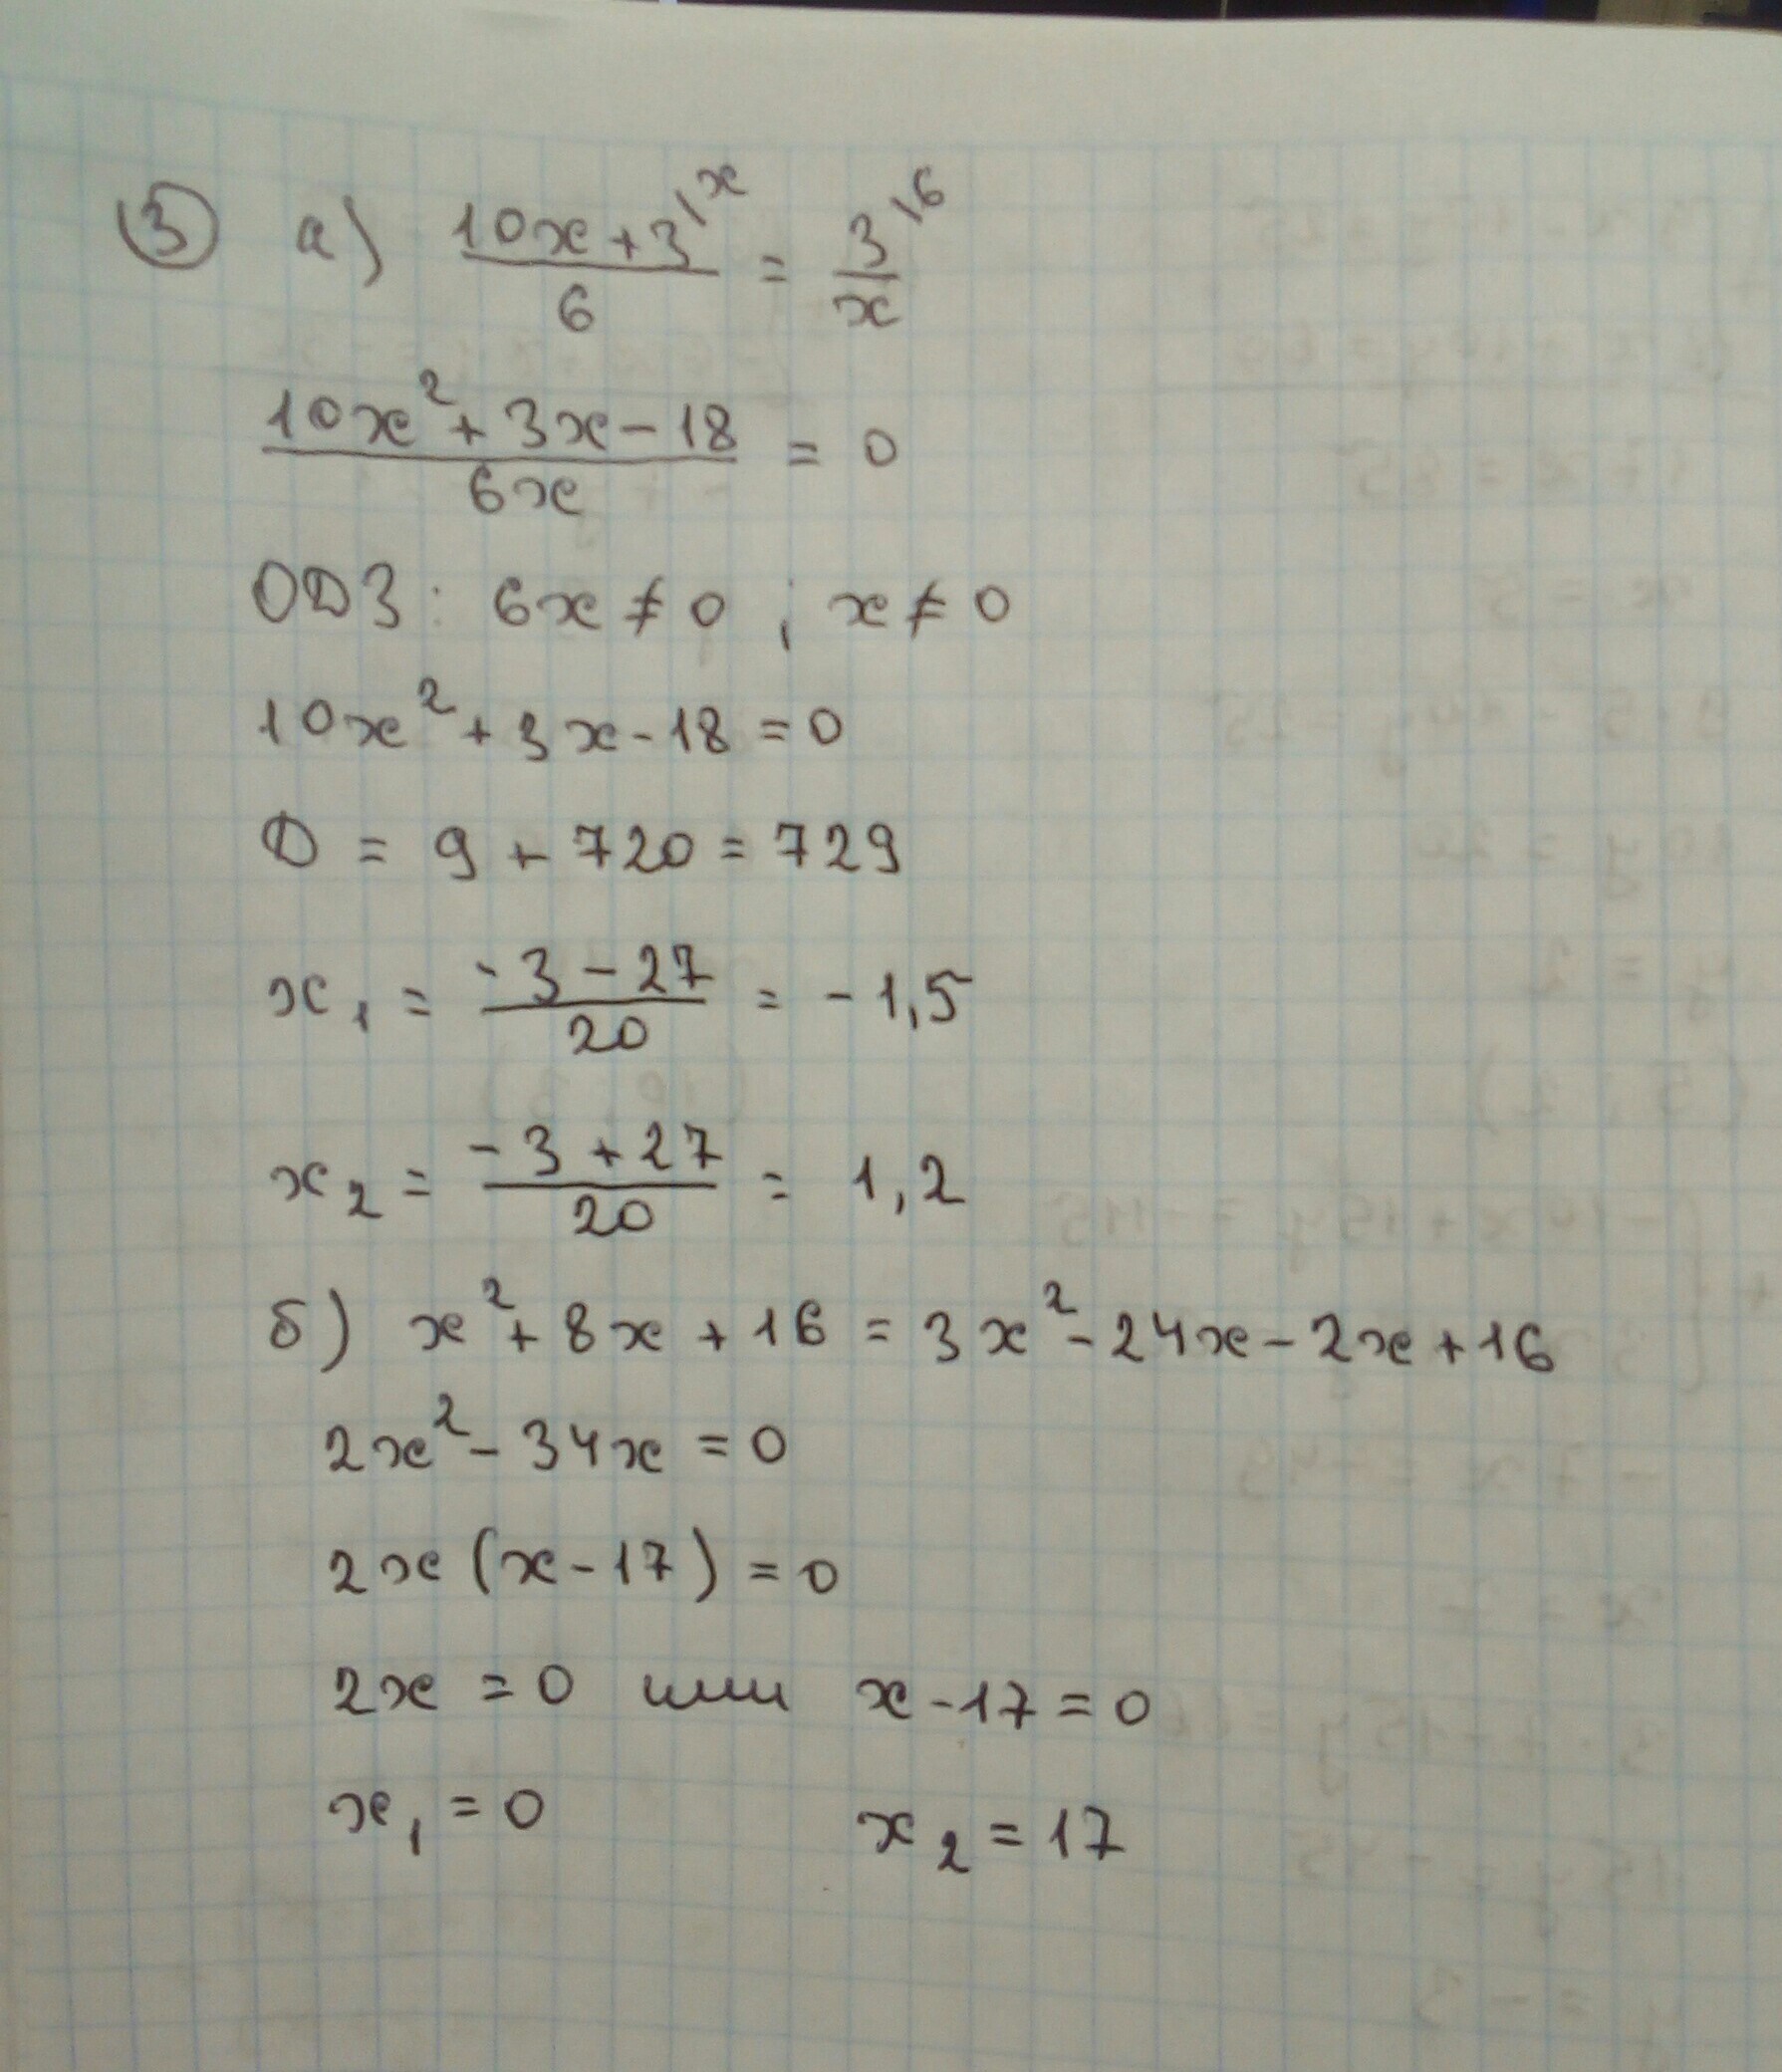 ③ а) (10x+3)/6 \x = 3/x \6
(10x²+3x-18)/6x = 0
ОДЗ: 6x≠0; x≠0
10x²+3x-18=0
D = 9+720=729
x₁ = (-3-27)/20 = -1,5
x₂ = (-3+27)/20 = 1,2
б) x²+8x+16=3x²-24x-2x+16
2x²-34x=0
2x(x-17)=0
2x=0 или x-17=0
x₁=0 x₂=17